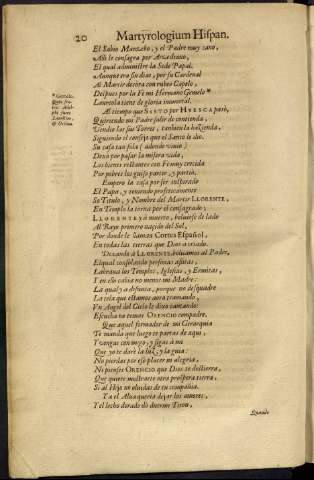 20 Martyrologium Hispan.
El Sabio Manzebo, y el Padre muy cano,
Alli le consagra por Arcediano,
El qual administre la Sede Papal.
Aunque tras dias, por su Cardenal
Al Martir decora con rubeo Capelo,
Despues por la Fè un Hermano Gemelo *
Laureola tiene de gloria inmortal.
Al tiempo que SIXTO por HUESCA passò,
Queriendo mi Padre salir de contienda,
Vendio las sus Torres, tambien la hazienda,
Siguiendo el consejo que el Santo le dio.
Su casa tan sola (adonde viuio)
Dexò por passar la misera vida;
Los bienes restantes con Fè muy crecida
Por pobres los quiso partir, y partio.
Empero la casa por ser
El Papa, y teniendo profeticamente
Su Titulo, y Nombre del Martir LLORENTE,
En Templo la torna por el consagrado;
LLORENTE ya muerto, bolviose de lado
Al Rayo primero nacido del Sol,
Por donde le llaman Cortes Español,
En todas las tierras que Dios a criado.
Dexando à LLORENTE, bolvamos al Padre,
El qual consolando personas
Labraua los Templos, Iglesias, y Ermitas,
Y en ello cabia no menos mi Madre:
La qual ya difunta, porque no desquadre
La tela que estamos aora tramando,
Un Angel del Cielo le dixo cantando:
Escucha no temas ORENCIO compadre.
Que aquel formador de mi Gerarquia
Te manda que luego te partas de aqui,
Y vengas conmigo, y sigas à mi
Que yo te darè la luz, y la guia:
No pierdas por esso placer ni alegria,
Ni pienses ORENCIO que Dios te destierra,
Que quiere mostrarte otra prospera tierra,
Si al Hijo no olvidas de tu compañia.
Ya el Alua queria dexar los amores,
Y el lecho dorado do duerme Titon,
Quando
* Gemelo.